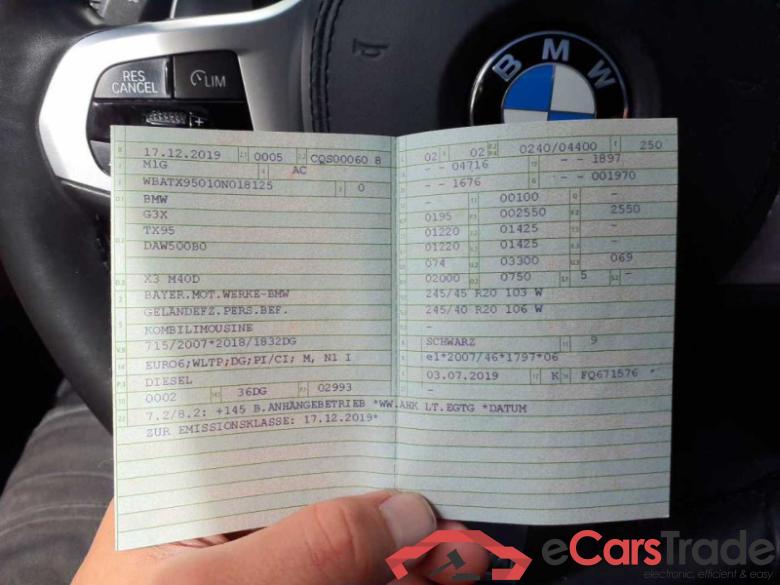 RES
CANCEL
LIM
BMW
17.12.2019 0005 CQS00060 8
M1G AC
WBATX95010N018125 0
BMW
G3X
TX95
DAW500B0
X3 M40D
BAYER.MOT.WERKE-BMW
GELÄNDEFZ.PERS.BEF.
KOMBILIMOUSINE
715/2007*2018/1832DG
EURO6;WLTP;DG;PI/CI; M, N1 I
DIESEL
0002 36DG 02993
7.2/8.2: +145 B.ANHÄNGEBETRIEB *WW.AHK LT.EGTG *DATUM
ZUR EMISSIONSKLASSE: 17.12.2019*
02 02 0240/04400 250
- - 04716 - - 1897
- - 1676 - - 001970
- 00100 -
0195 002550 2550
01220 01425 -
01220 01425 -
074 03300 069
02000 0750 5 -
245/45 R20 103 W
245/40 R20 106 W
-
SCHWARZ 9
e1*2007/46*1797*06
03.07.2019 K FQ671576
-
eCarsTrade
electronic, efficient & easy